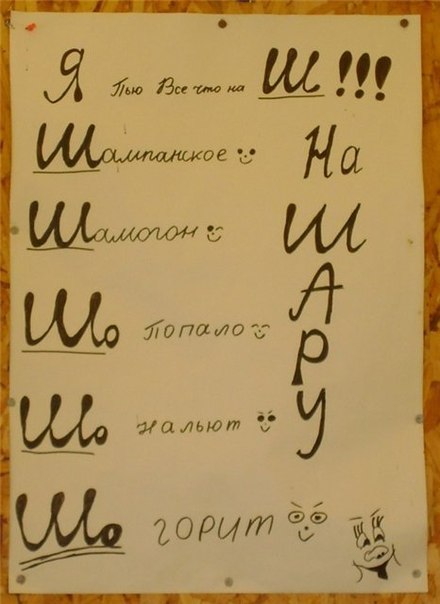 Я пью Все что на Ш!!!
Шампанское
Шамогон
Шо Попало
Шо нальют
Шо горит
На
Ш
А
Р
У